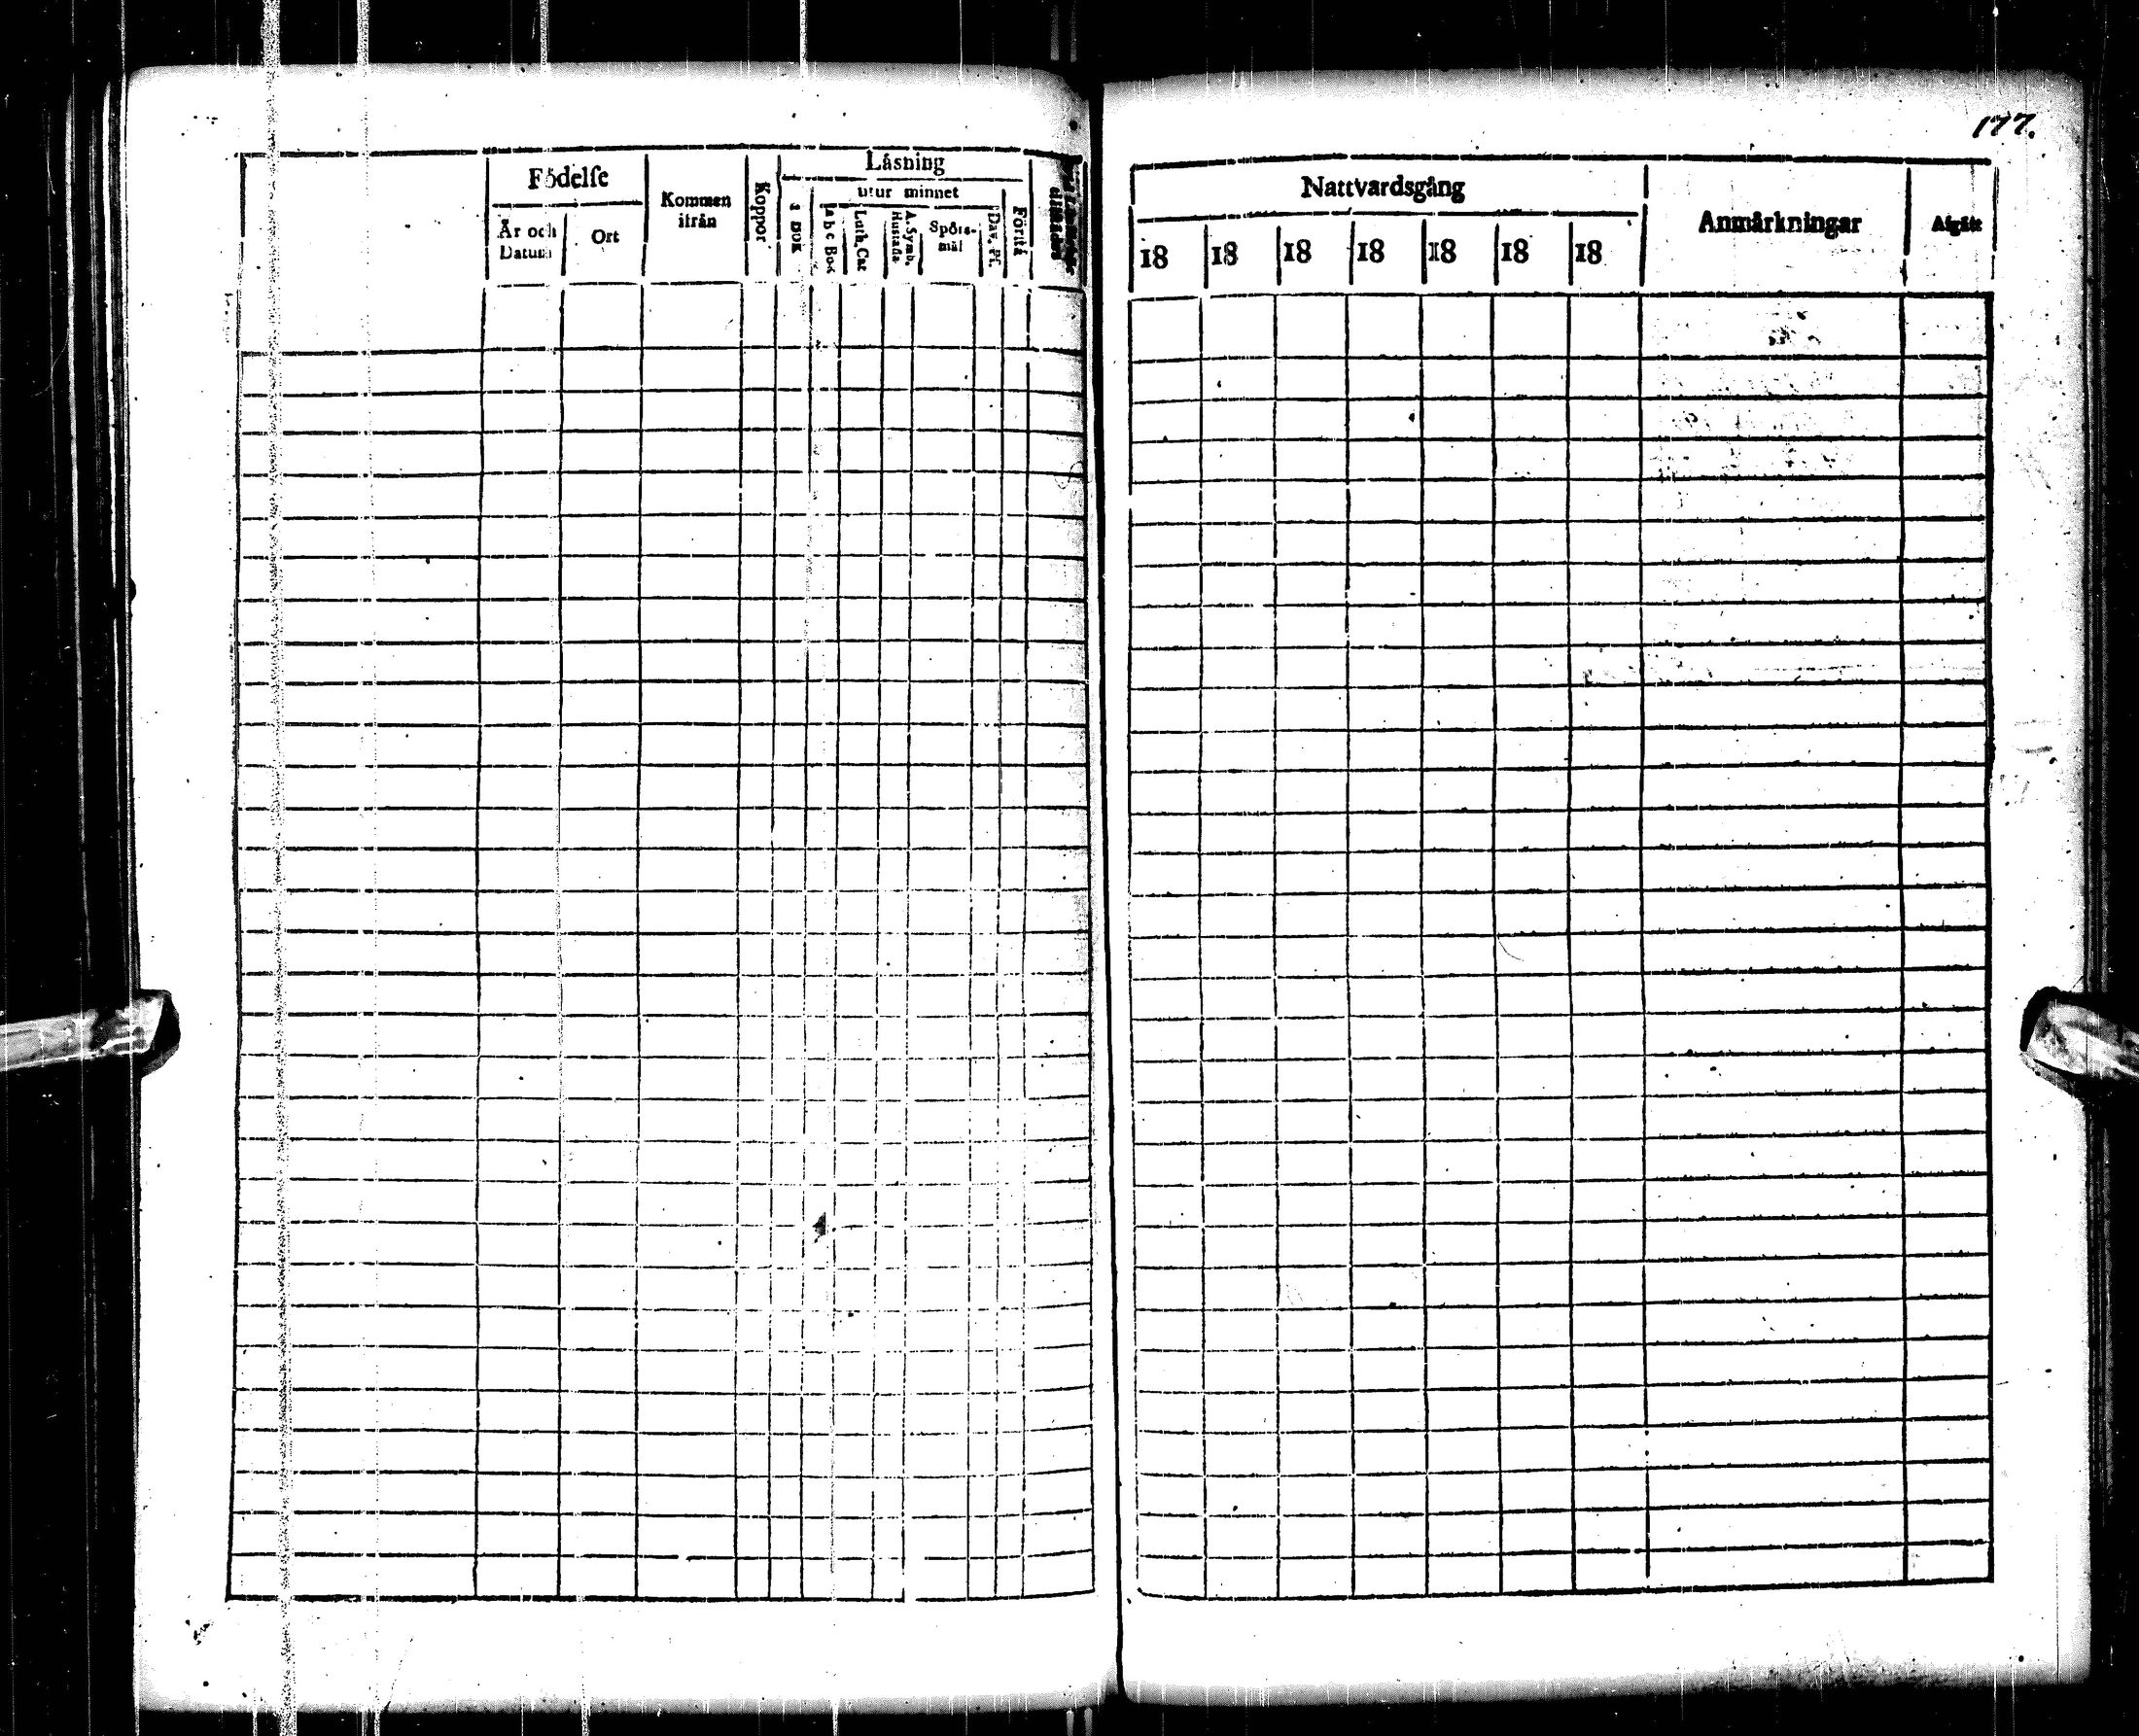 177.
Födelse
År och Datum
Ort
Kommen ifrån
Koppor
Låsning
utur minnet
i Bok
a b c Bok
Luth. Cat
A. Symb. Hustafla
Spörs-mål
Dav. Ps.
Förstå
Nattvardsgång
18 18 18 18 18 18 18
Anmårkningar
Afgått